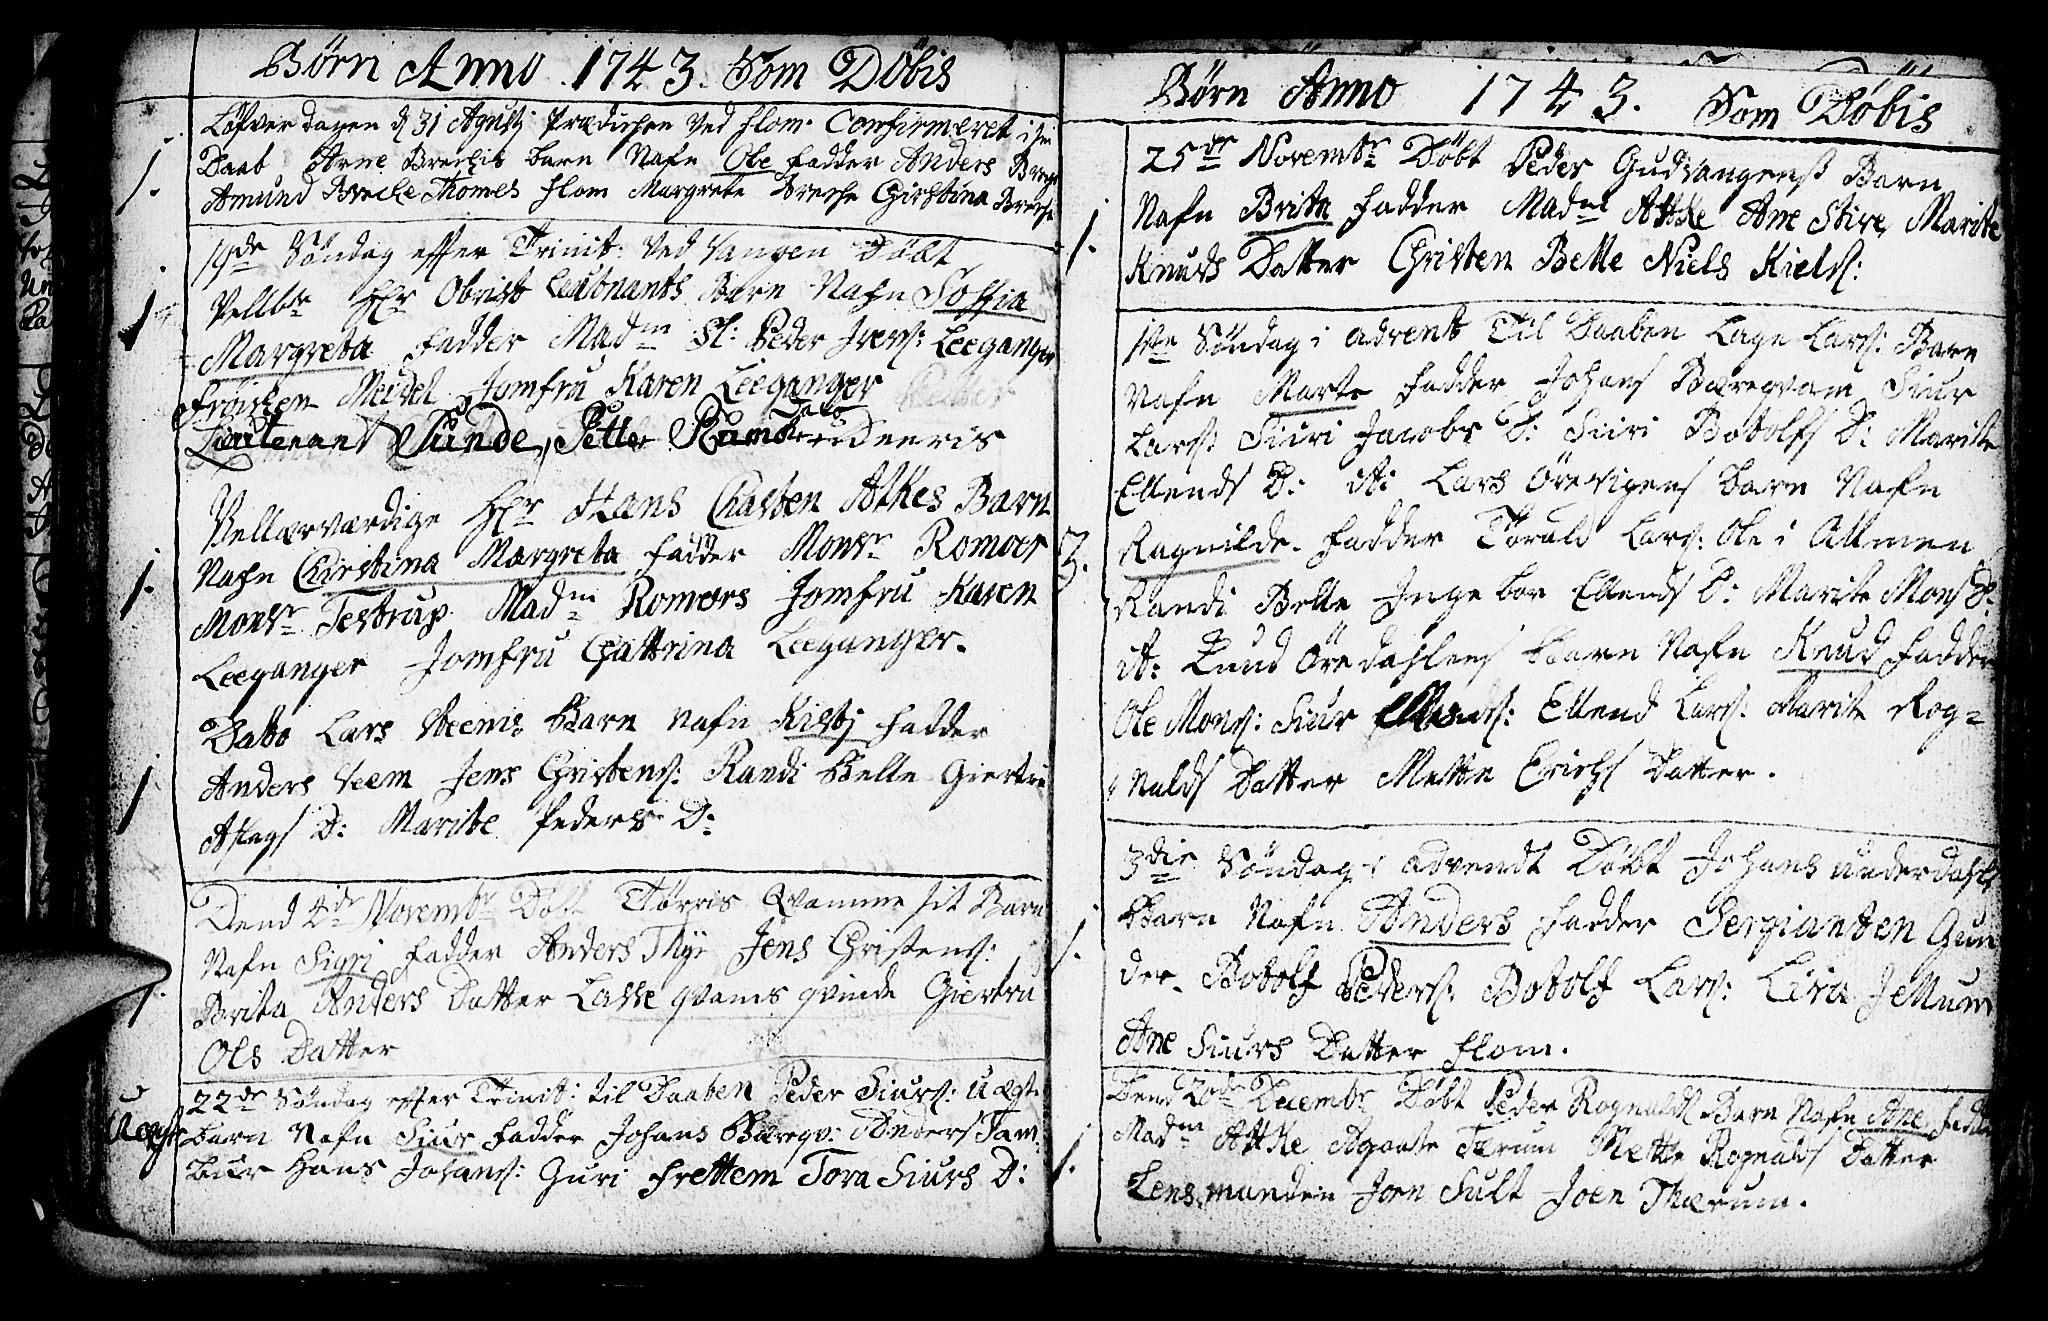 Börn Anno 1743. Som Döbis
Löfverdagen d 31 Agusti Prædichen Ved flom. Confirmeret i sin
Daab Arne Brechis barn Nafn Ole fadder Anders Breche
Amund Breche Thomes flom Margrete Breche Christina Breche
19de Söndag effter Trinit: Ved Vangen Döbt
Velbr Hr Obrist Leutnants Barn Nafn Soffia
Margreta fadder Madm Sl: Peder Ivers: Leeganger
Fröisken Meidel Jomfru Karen Leeganger
Lieutenant Munde, Petter
Vellærværdige Hr Hans Christen Atkes Barn
Nafn Christina Margreta fadder Monsr Romoer
Monsr Testrup Madm Romoers Jomfru Karen
Leeganger Jomfru Cattrina Leeganger.
Dato Lars Veems Barn nafn Kistj fadder
Anders Veem Jens Christens: Randi Belle Giertru
Aslags D: Marite Peders D:
Dend 4de Novembr Döbt Törris Qvamme sit Barn
Nafn Sigri fadder Anders Thye Jens Christens:
Brita Anders Datter Lasse qvams qvinde Giertru
Ols Datter
22de Söndag effter Trinit: til Daaben Peder Siurs: uægt.
Uægte barn Nafn Siur fadder Johans Bæreqv: Anders Tam
bur Hans Johans: Guri Frettem Tora Siurs D:
Börn Anno 1743. Som Döbis
25de Novembr Döbt Peder Gudvangens Barn
Nafn Brita fadder Madm Atke Ane Stive Marite
Knuds Datter Christen Belle Niels Kields:
1ste Söndag i advent Til Daaben Lage Lars: Barn
Nafn Marte fadder Johans Bæreqvam Siur
Lars: Siuri Jacobs D: Siuri Botolfs D: Marite
Ellends D: it: Lars Örevigens barn Nafn
3. Ragnilde. fadder Torald Lars: Ole i Allmen
Randi Belle Ingebor Ellends D: Marite Mons D:
it: Knud Öredahlens Barn Nafn Knud fadder
Ole Mons: Siur Ellends: Ellend Lars: Marite Rog=
nalds Datter Mette Erichs Datter.
3die Söndag i advendt Döbt Johans underdahls
Barn Nafn Anders fadder Sergianten Gun
der Botolf Peders: Botolf Lars: Liva
Ane Siurs Datter flom.
Dend 20de Decembr Döbt Peder Rognalds Barn Nafn Ane fadder
Madm Atke Agaate Tærum Mette Rognalds Datter
Lensmanden Jorn Sult Joen Thærum.